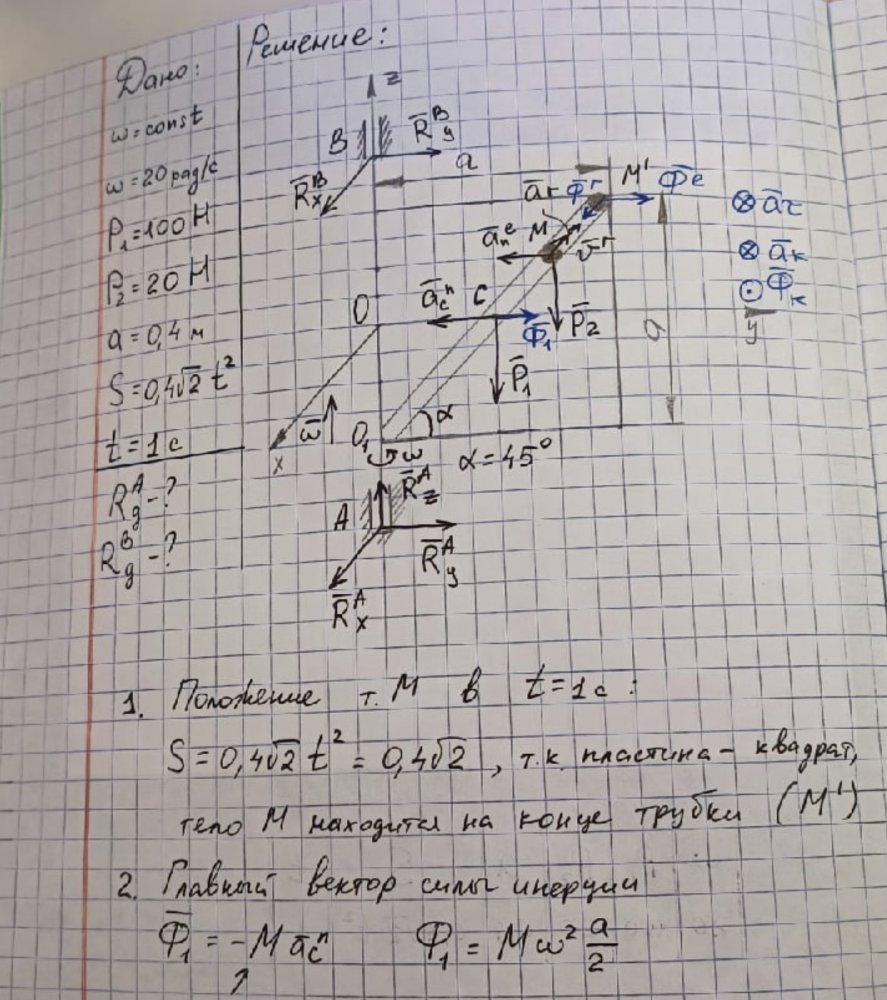 Дано:
ω=const
ω=20 рад/с
P₁=100 Н
P₂=20 Н
a=0,4 м
S=0,4√2 t²
t=1c
R_g^A-?
R_g^B-?
Решение:
z
B
R̅_y^B
a
R̅_x^B
a̅r
Φ̅ʳ
M'
Φ̅e
⊗ a̅τ
a̅_n^e
M
v̅ʳ
⊗ a̅k
⊙ Φ̅k
O
a̅_c^n
C
Φ̅₁
P̅₂
a
y
P̅₁
x
ω̅
O₁
ω
α
α=45°
R̅_z^A
A
R̅_y^A
R̅_x^A
1. Положение т. М в t=1c:
S=0,4√2 t² = 0,4√2, т.к. пластина - квадрат,
тело М находится на конце трубки (M')
2. Главный вектор силы инерции
Φ̅₁ = -M a̅_c^n Φ₁ = Mω² a/2